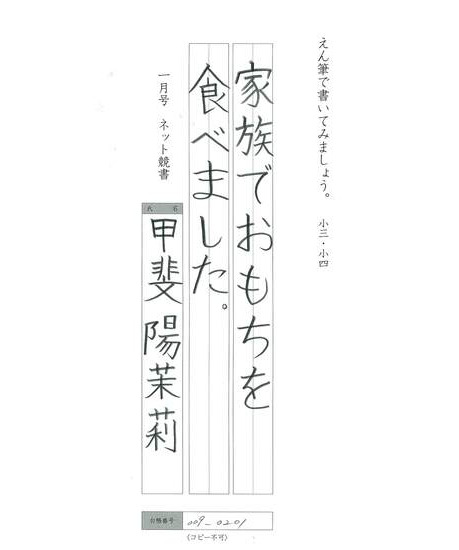 えん筆で書いてみましょう。 小三・小四
家族でおもちを
食べました。
一月号 ネット競書
氏名
甲斐陽茉莉
台帳番号 009-0201
(コピー不可)